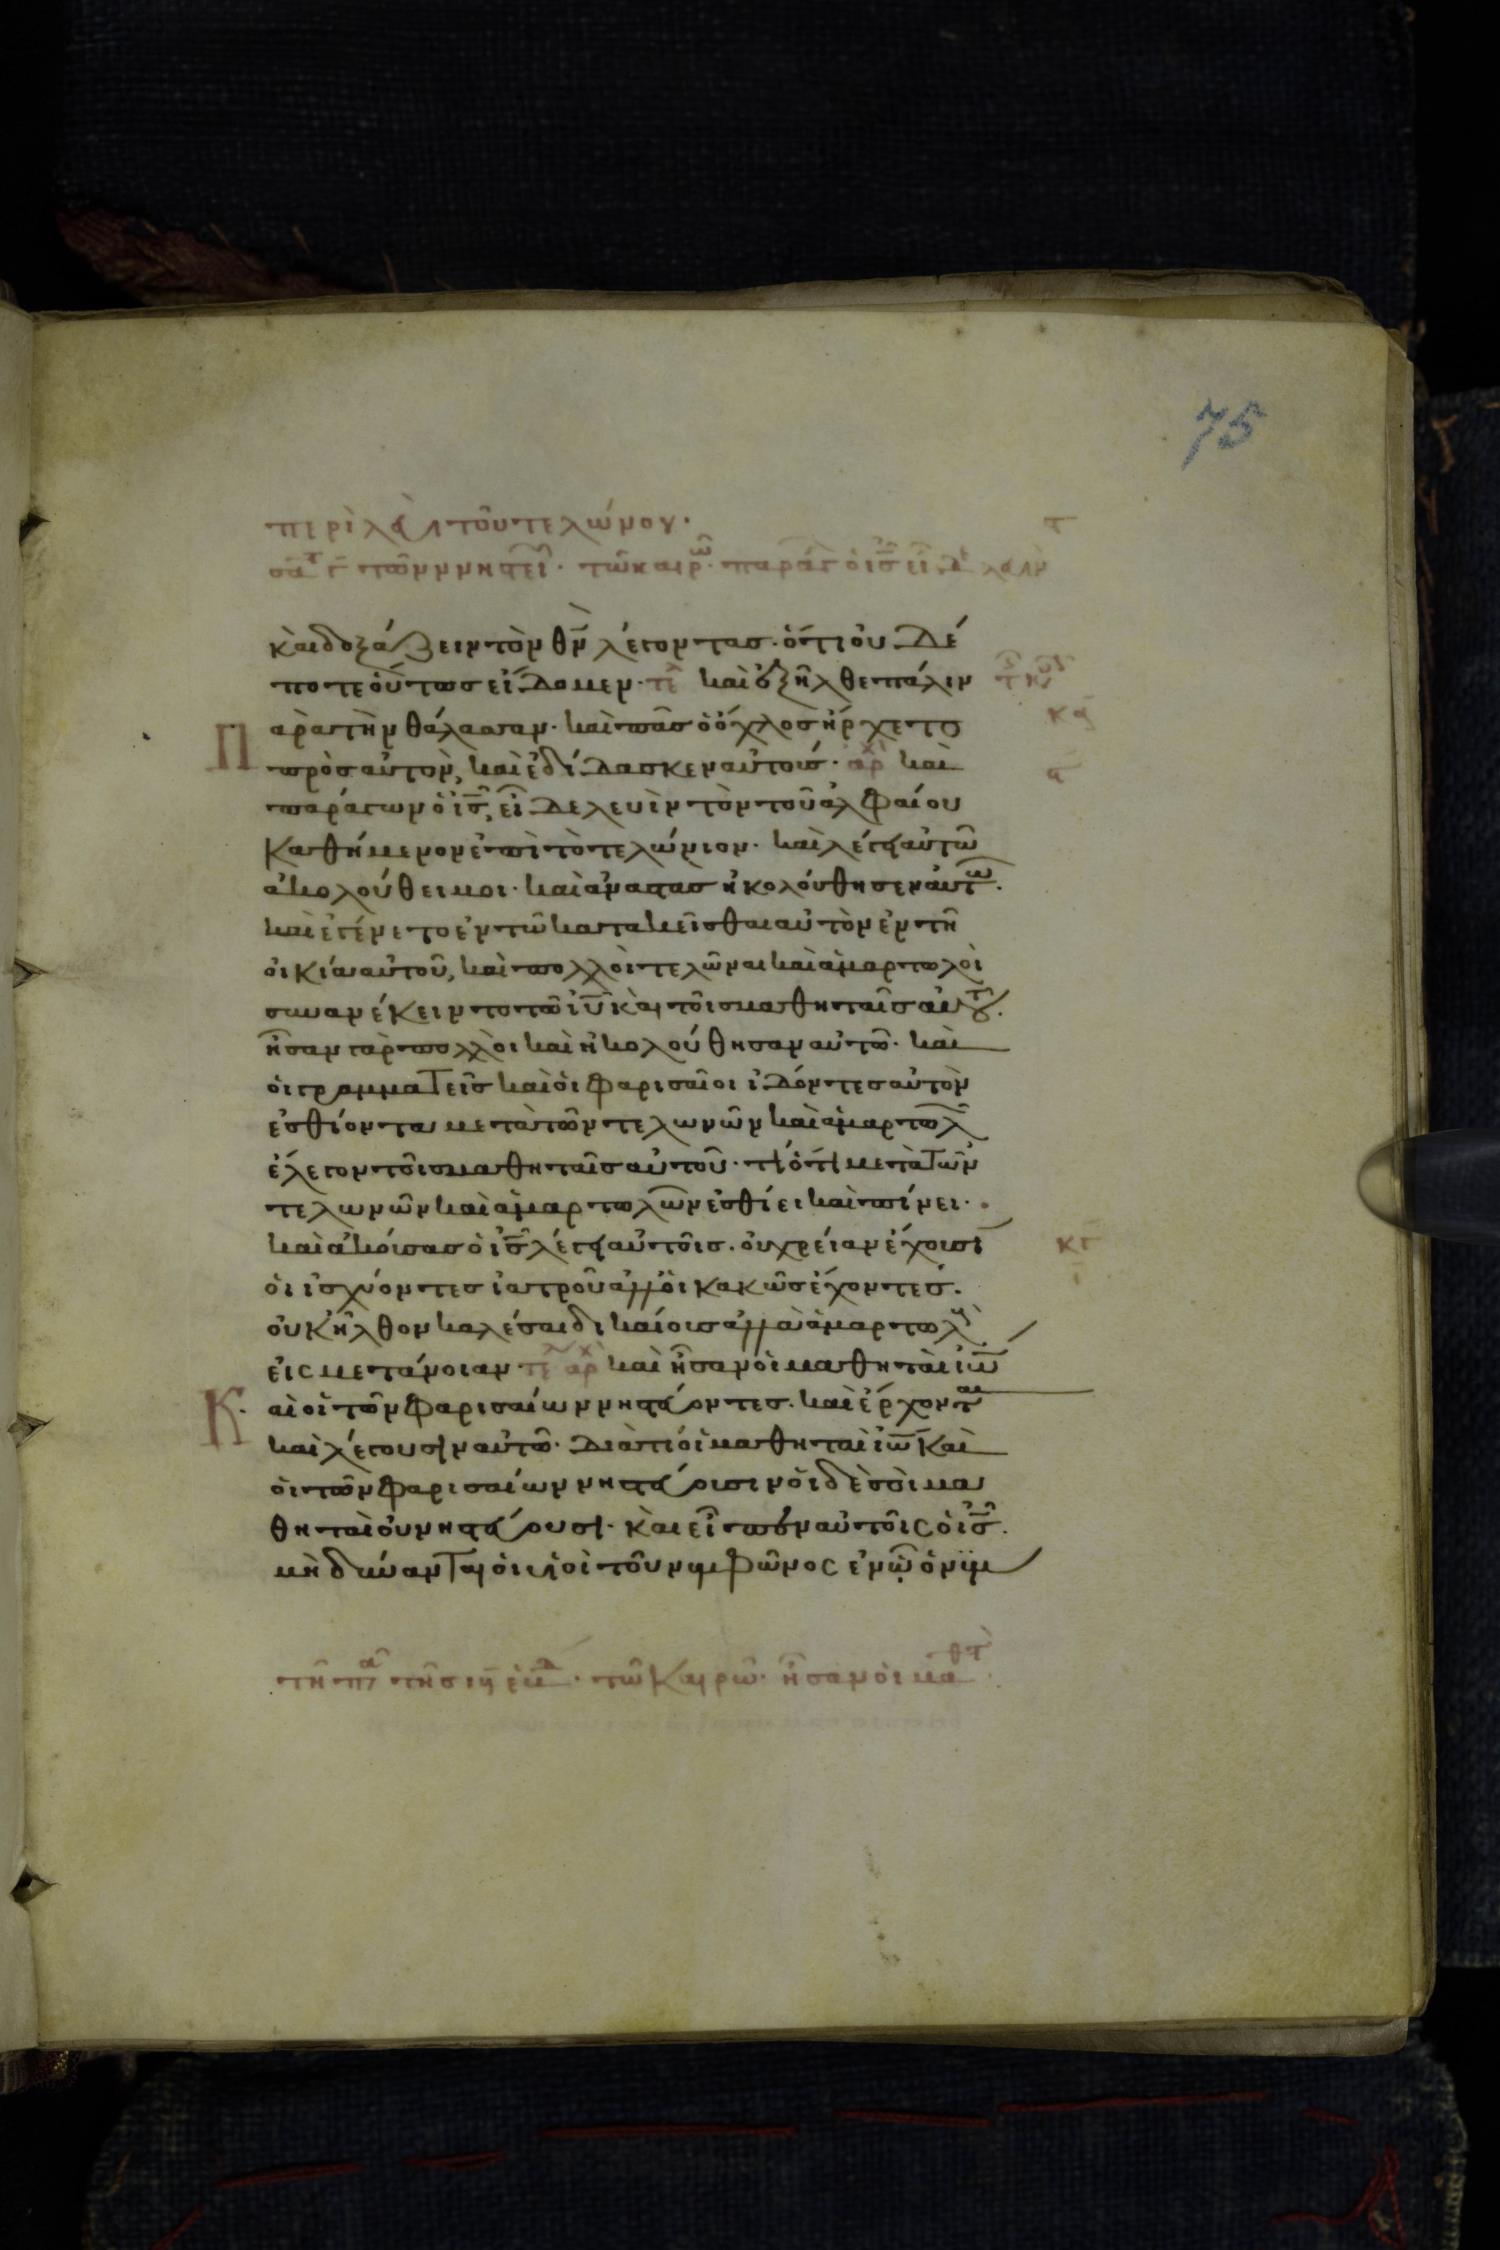 75
περὶ λευὶ τοῦ τελώνου·
καὶ δοξάζειν τὸν θν̄ λέγοντασ· ὅτι οὐδέ
ποτε οὕτωσ εἴδομεν· τε καὶ ἐξῆλθε πάλιν
Παρὰ τὴν θάλασσαν· καὶ πᾶσ ὁ ὄχλοσ ἤρχετο κα
πρὸσ αὐτὸν, καὶ ἐδίδασκεν αὐτούσ· ἀρχ καὶ
παράγων ὁ ἰς̄, εἶδε λευὶν τὸν τοῦ ἀλφαίου
καθήμενον ἐπὶ τὸ τελώνιον· καὶ λέγει αὐτῶ
ἀκολούθει μοι· καὶ ἀναστὰσ ἠκολούθησεν αὐτῶ.
καὶ ἐγένετο ἐν τῶ κατακεῖσθαι αὐτὸν ἐν τῆ
οἰκία αὐτοῦ, καὶ πολλοὶ τελῶναι καὶ ἁμαρτωλοὶ
συνανέκειντο τῶ ἰῡ καὶ τοῖσ μαθηταῖσ αὐτοῦ.
ἦσαν γὰρ πολλοὶ καὶ ἠκολούθησαν αὐτῶ· καὶ
οἱ γραμματεῖσ καὶ οἱ φαρισαῖοι ἰδόντεσ αὐτὸν
ἐσθίοντα μετὰ τῶν τελωνῶν καὶ ἁμαρτωλ
ἔλεγον τοῖσ μαθηταῖσ αὐτοῦ· τί ὅτι μετὰ τῶν
τελωνῶν καὶ ἁμαρτωλῶν ἐσθίει καὶ πίνει·
καὶ ἀκούσασ ὁ ἰς̄ λέγει αὐτοῖσ· οὐ χρείαν ἔχουσι κγ
οἱ ἰσχύοντεσ ἰατροῦ ἀλλ' οἱ κακῶσ ἔχοντεσ.
οὐκ ἦλθον καλέσαι δικαίουσ ἀλλὰ ἁμαρτωλ
εἰς μετάνοιαν· τε ἀρχ καὶ ἦσαν οἱ μαθηταὶ ἰω̄
Και οἱ τῶν φαρισαίων νηστεύοντεσ· καὶ ἔρχονται
καὶ λέγουσιν αὐτῶ· διὰ τί οἱ μαθηταὶ ἰω̄ καὶ
οἱ τῶν φαρισαίων νηστεύουσιν οἱ δὲ σοὶ μα
θηταὶ οὐ νηστεύουσι· καὶ εἶπεν αὐτοῖς ὁ ἰς̄.
μὴ δύνανται οἱ υἱοὶ τοῦ νυμφῶνος ἐν ὧ ὁ νυμ
τῶ καιρῶ· ἦσαν οἱ μαθτ